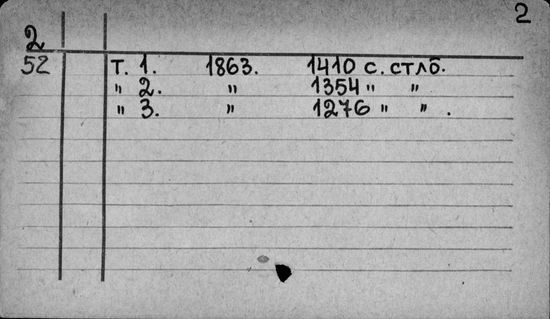 2
2
52 т. 1. 1863. 1410 с. стлб.
" 2. " 1354 " "
" 3. " 1276 " " .